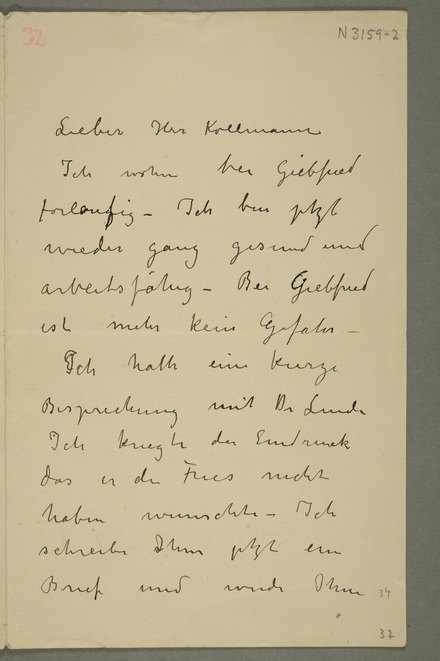 32
N3159-2
Lieber Herr Kollmann
Ich wohne bei Giebfried
forlaufig - Ich bin jetzt
wieder ganz gesund und
arbeitsfähig - Bei Giebfried
ist mehr kein Gefahr -
Ich hatte eine kurze
Besprechung mit Dr Linde
Ich kriegte der Eindruck
das er den Fries nicht
haben wunschte - Ich
schreibe Ihm jetzt ein
Brief und werde Ihm
34
37